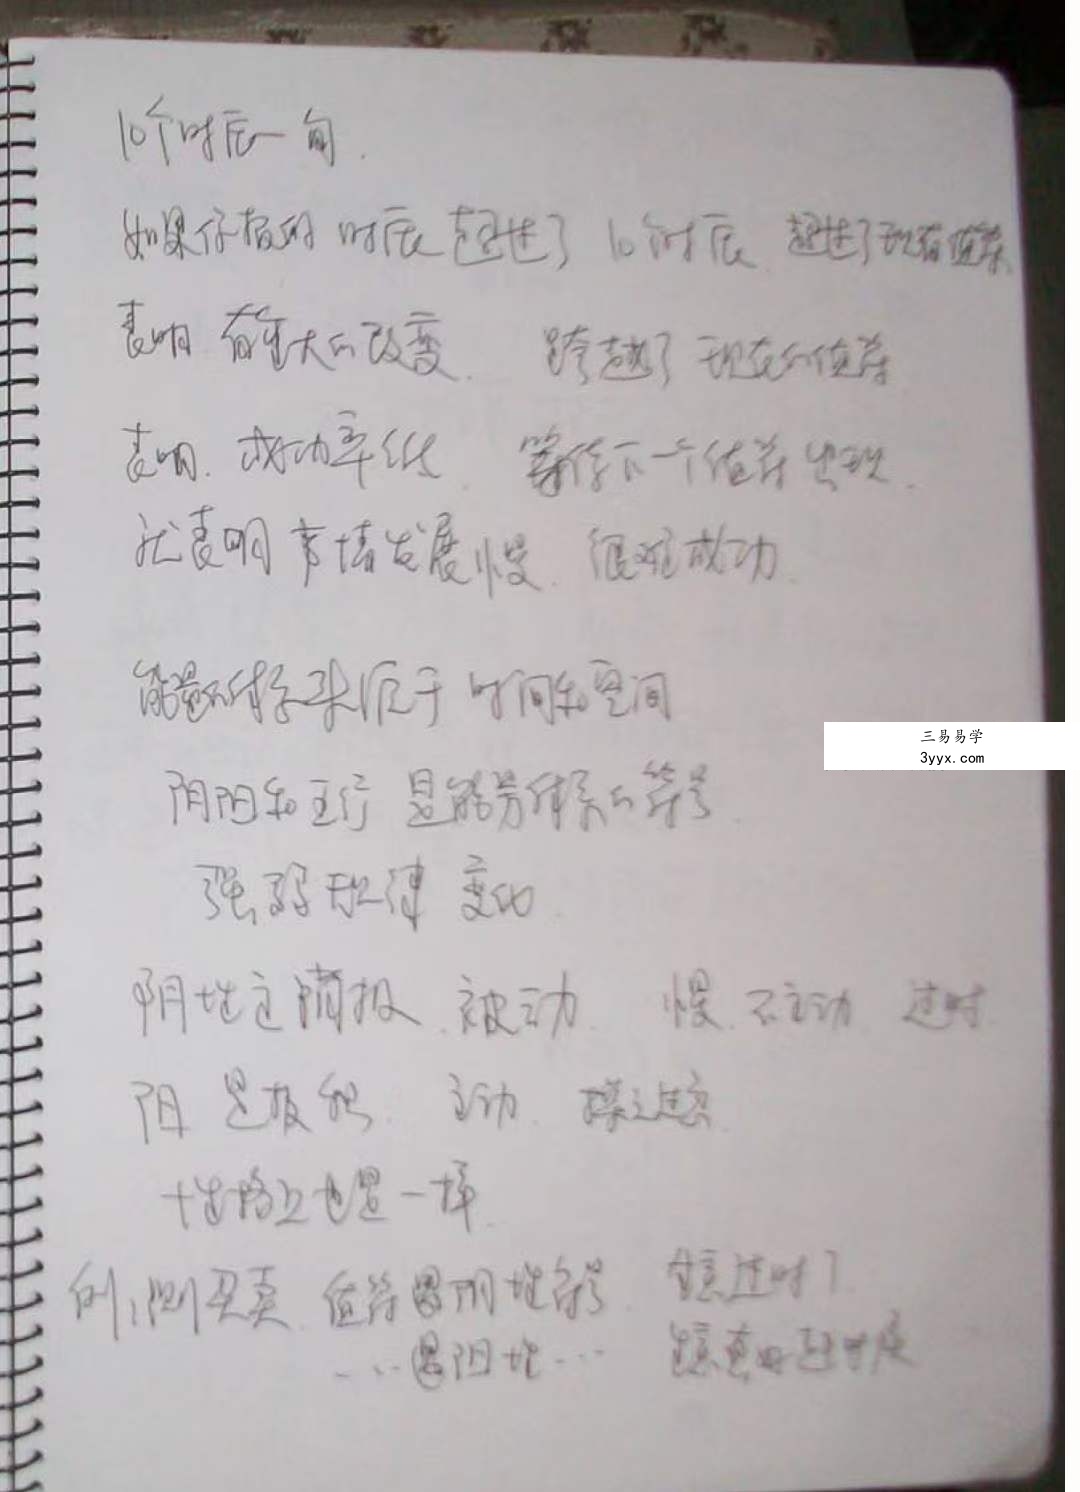 10个时辰一旬.
如果你报的时辰超过了10个时辰 超过了现有值符
表明 有重大的改变. 跨越了现在的值符
表明. 成功率低 等待下一个值符出现.
就表明事情发展慢. 很难成功.
能量的体系来源于时间和空间
阴阳和五行是能量体系的符号.
强弱规律变化.
阴性主消极.被动. 慢.不主动 过时.
阳 是积极. 主动.
性格上也是一样.
例:测买卖 值符是阴性符号. 生意过时了
...是阳性...
三易易学
3yyx.com